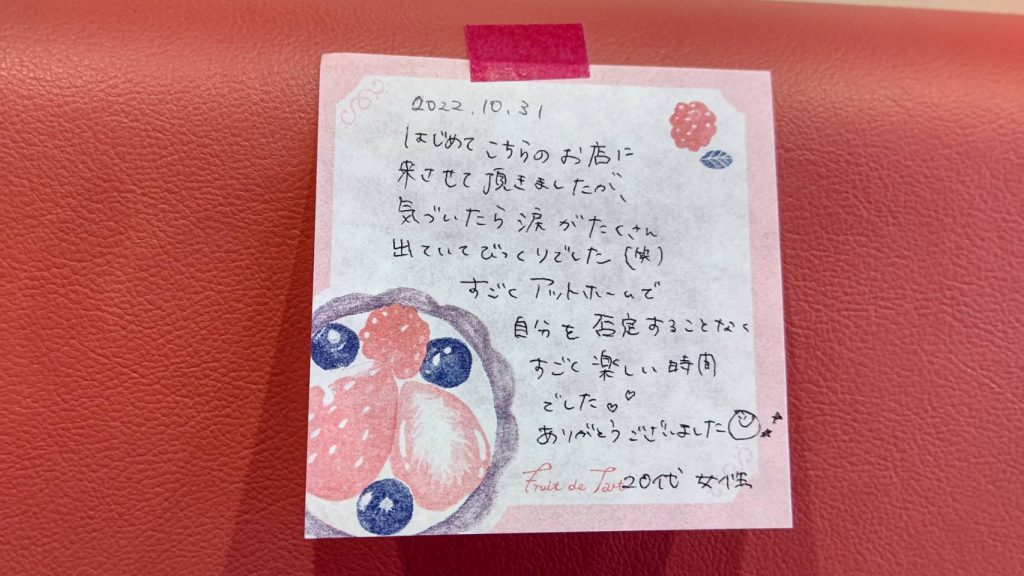 2022.10.31
はじめて こちらの お店に
来させて 頂きましたが、
気づいたら 涙 がたくさん
出ていてびっくりでした (笑)
すごく アットホームで
自分を 否定することなく
すごく 楽しい 時間
でした♡♡
ありがとうございました
Fruit de Tart
20代 女性